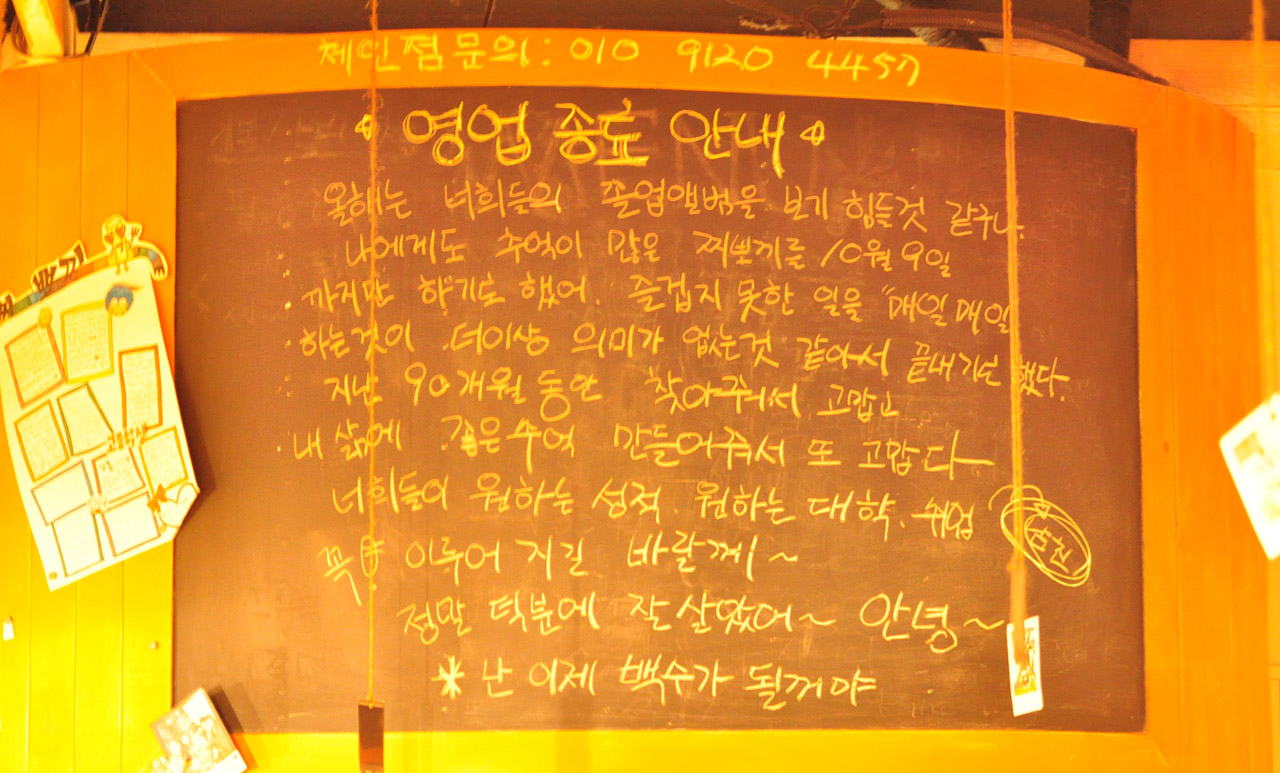 체인점문의: 010 9120 4457
영업 종료 안내
올해는 너희들의 졸업앨범을 보기 힘들것 같구나.
나에게도 추억이 많은 찌뽀끼를 10월 9일
까지만 하기로 했어. 즐겁지 못한 일을 "매일매일
하는것이 더이상 의미가 없는것 같아서 끝내기로 했다.
지난 90개월 동안 찾아줘서 고맙고
내 삶에 좋은추억 만들어줘서 또 고맙다~
너희들이 원하는 성적. 원하는 대학. 취업
꼭 이루어 지길 바랄께~
정말 덕분에 잘살았어~ 안녕~
* 난 이제 백수가 될꺼야